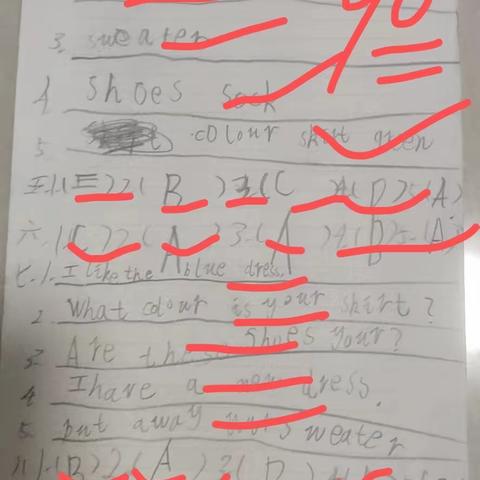 90
3. sweater
4 shoes sock
5. colour skirt green
五.1.(E)2(B)3(C)4(D)5(A)
六.1(C)2(A)3.(A)4(B)5.(A)
七.1. I like the blue dress.
2. What colour is your skirt?
3. Are these shoes your?
4 I have a new dress.
5. put away your sweater
1.(B)2(A)3(D)